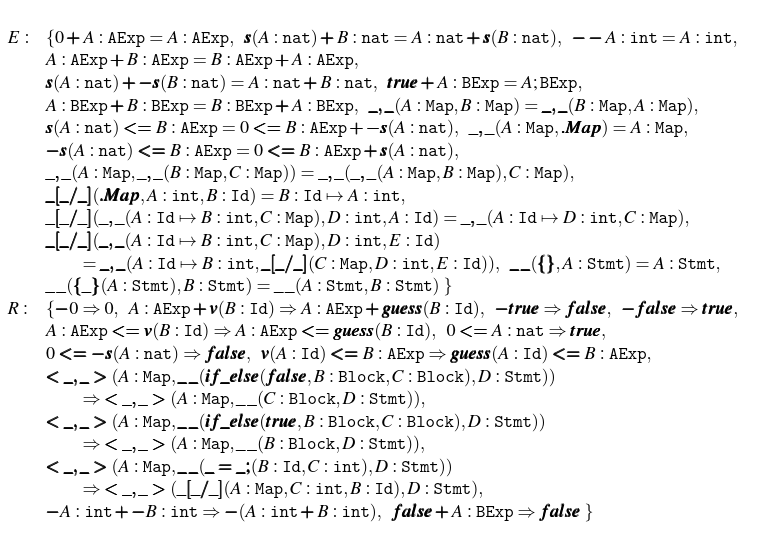 E : {0+A : AExp = A : AExp, s(A : nat)+B : nat = A : nat+s(B : nat), −−A : int = A : int,
A : AExp+B : AExp = B : AExp+A : AExp,
s(A : nat)+−s(B : nat) = A : nat+B : nat, true+A : BExp = A;BExp,
A : BExp+B : BExp = B : BExp+A : BExp, _,_(A : Map,B : Map) = _,_(B : Map,A : Map),
s(A : nat) <= B : AExp = 0 <= B : AExp+−s(A : nat), _,_(A : Map,.Map) = A : Map,
−s(A : nat) <= B : AExp = 0 <= B : AExp+s(A : nat),
_,_(A : Map,_,_(B : Map,C : Map)) = _,_(_,_(A : Map,B : Map),C : Map),
_[_/_](.Map,A : int,B : Id) = B : Id ↦ A : int,
_[_/_](_,_(A : Id ↦ B : int,C : Map),D : int,A : Id) = _,_(A : Id ↦ D : int,C : Map),
_[_/_](_,_(A : Id ↦ B : int,C : Map),D : int,E : Id)
= _,_(A : Id ↦ B : int,_[_/_](C : Map,D : int,E : Id)), __({},A : Stmt) = A : Stmt,
__({_}(A : Stmt),B : Stmt) = __(A : Stmt,B : Stmt) }
R : {−0 ⇒ 0, A : AExp+v(B : Id) ⇒ A : AExp+guess(B : Id), −true ⇒ false, −false ⇒ true,
A : AExp <= v(B : Id) ⇒ A : AExp <= guess(B : Id), 0 <= A : nat ⇒ true,
0 <= −s(A : nat) ⇒ false, v(A : Id) <= B : AExp ⇒ guess(A : Id) <= B : AExp,
< _,_ > (A : Map,__(if_else(false,B : Block,C : Block),D : Stmt))
⇒ < _,_ > (A : Map,__(C : Block,D : Stmt)),
< _,_ > (A : Map,__(if_else(true,B : Block,C : Block),D : Stmt))
⇒ < _,_ > (A : Map,__(B : Block,D : Stmt)),
< _,_ > (A : Map,__(_ = _;(B : Id,C : int),D : Stmt))
⇒ < _,_ > (_[_/_](A : Map,C : int,B : Id),D : Stmt),
−A : int+−B : int ⇒ −(A : int+B : int), false+A : BExp ⇒ false }